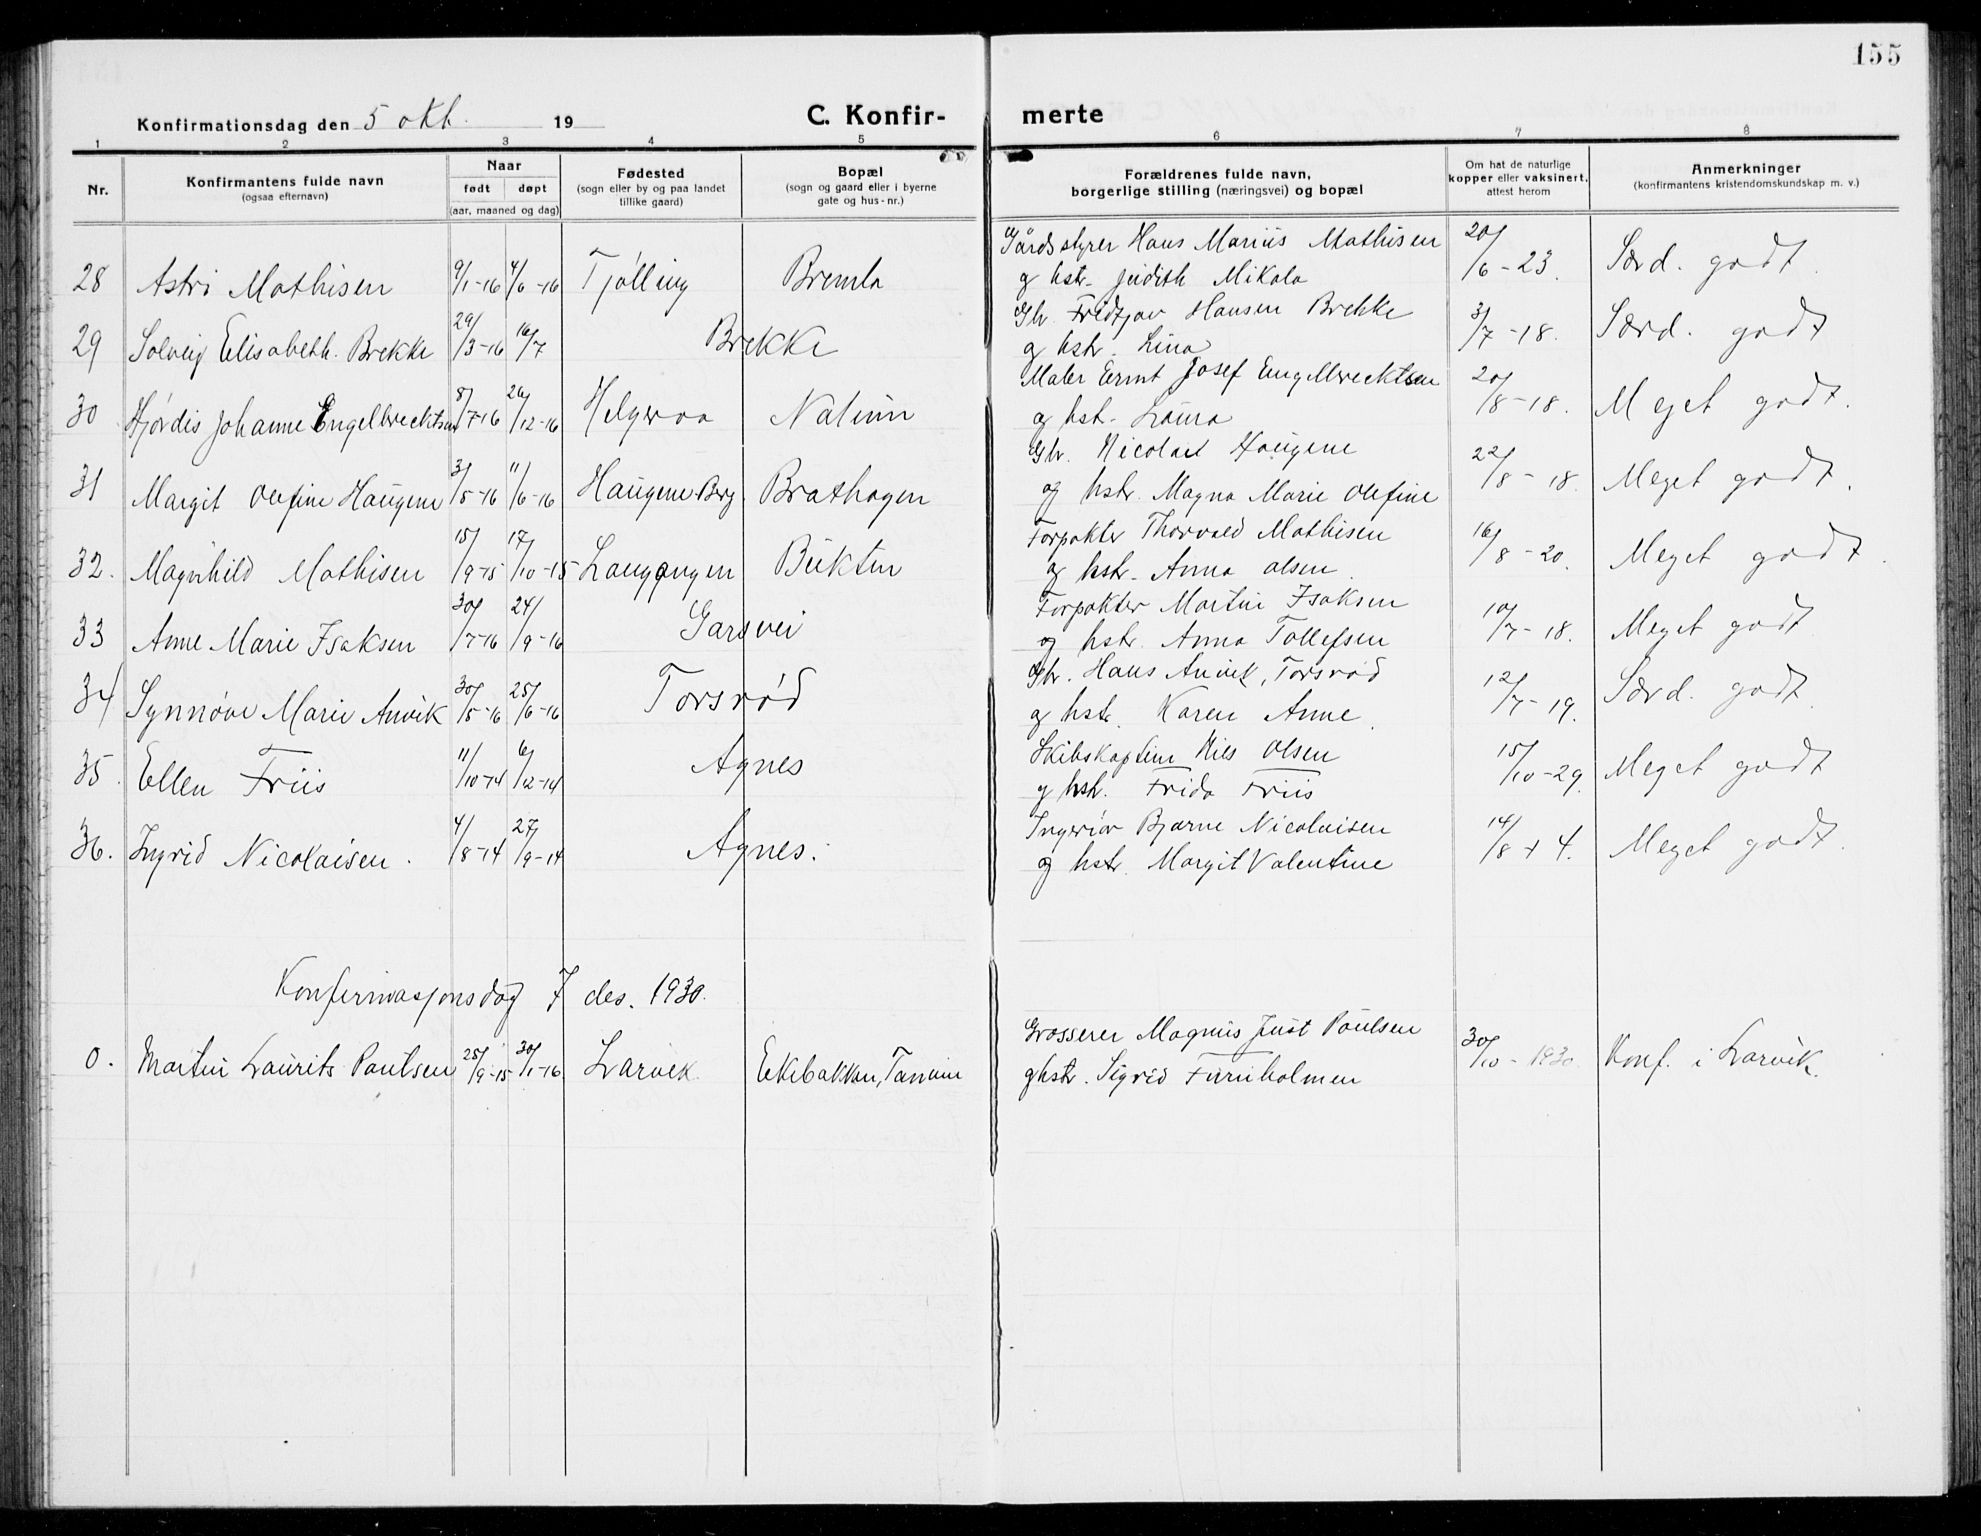 155
Konfirmationsdag den 5 okt. 19
C. Konfir-
merte
1 2 3 4 5 6 7 8
Nr.
Konfirmantens fulde navn
(ogsaa efternavn)
Naar
født døpt
(aar, maaned og dag)
Fødested
(sogn eller by og paa landet
tillike gaard)
Bopæl
(sogn og gaard eller i byerne
gate og hus-nr.)
Forældrenes fulde navn,
borgerlige stilling (næringsvei) og bopæl
Om hat de naturlige
kopper eller vaksinert,
attest herom
Anmerkninger
(konfirmantens kristendomskundskap m. v.)
Gårdsstyrer Hans Marius Mathisen
28 Astri Mathisen 9/1-16 4/6-16 Tjølling Bremla og hstr. Judith Mikala 20/6-23. Særd. godt.
Gbr. Fridtjov Hansen Brekke
29 Solveig Elisabeth Brekke 29/3-16 16/7 Brekke og hstr. Lina 3/7-18. Særd. godt
Maler Ernst Josef Engelbrecktsen
30 Hjørdis Johanne Engelbrecktsen 8/7-16 26/12-16 Helgeroa Nalum og hst. Laura 20/8-18. Meget godt.
Gbr. Nicolai Haugene
31 Margit Olefine Haugene 3/5-16 11/6-16 Haugene Berg Brathagen og hstr. Magna Marie Olefine 22/8-18. Meget godt.
Forpakter Thorvald Mathisen
32. Magnhild Mathisen 15/9-15 17/10-15 Langangen Bukten og hstr. Anna Olsen. 16/8-20. Meget godt.
Forpakter Martin Isaksen
33 Anne Marie Isaksen 30/7-16 24/9-16 Garsvei og hstr. Anna Tollefsen 10/7-18. Meget godt
Gbr. Hans Anvik, Torsrød
34 Synnøve Marie Anvik 30/5-16 25/6-16 Torsrød og hstr. Karen Anne. 12/7-19. Særd. godt.
Skibskaptein Nils Olsen
35. Ellen Friis 11/10-14 6/12-14 Agnes og hstr. Frida Friis 15/10-29. Meget godt
Ingeniør Bjarne Nicolaisen
36. Ingrid Nicolaisen. 4/8-14 27/9-14 Agnes. og hstr. Margit Valentine 14/8 + 4. Meget godt.
Konfirmasjonsdag 7 des. 1930.
Grosserer Magnus Just Paulsen
0. Martin Laurits Paulsen 25/9-15 30/1-16 Larvik Ekebakken, Tanum og hstr. Sigrid Furuholmen 30/10-1930. Konf. i Larvik.